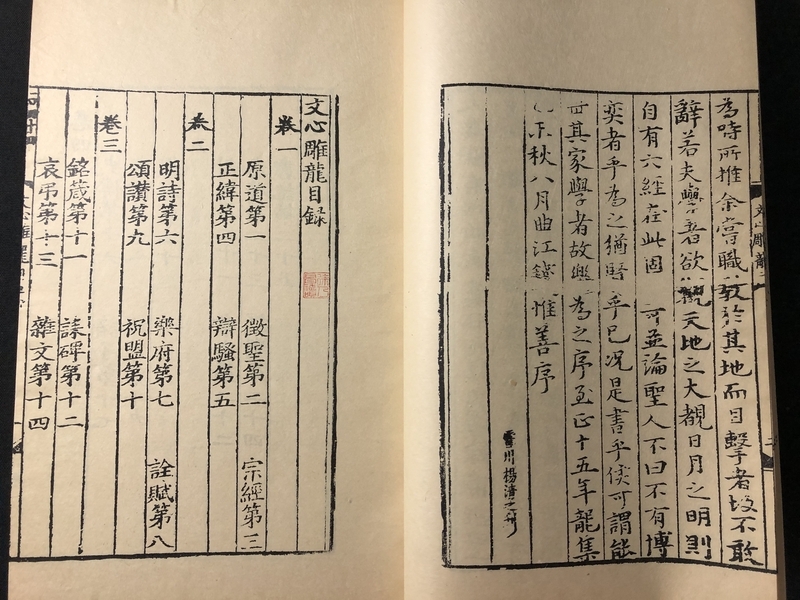 為時所推余嘗職教於其地而目擊者故不敢
辭若夫學者欲觀天地之大覩日月之明則
自有六經在此固可并論聖人不曰不有博
奕者乎為之猶賢乎已況是書乎侯可謂能
世其家學者故樂為之序至正十五年龍集
乙未秋八月曲江錢惟善序
楊清之刊
文心雕龍
文心雕龍目録
卷一
原道第一 徵聖第二 宗經第三
正緯第四 辯騷第五
卷二
明詩第六 樂府第七 詮賦第八
頌讃第九 祝盟第十
卷三
銘箴第十一 誄碑第十二
哀弔第十三 雜文第十四